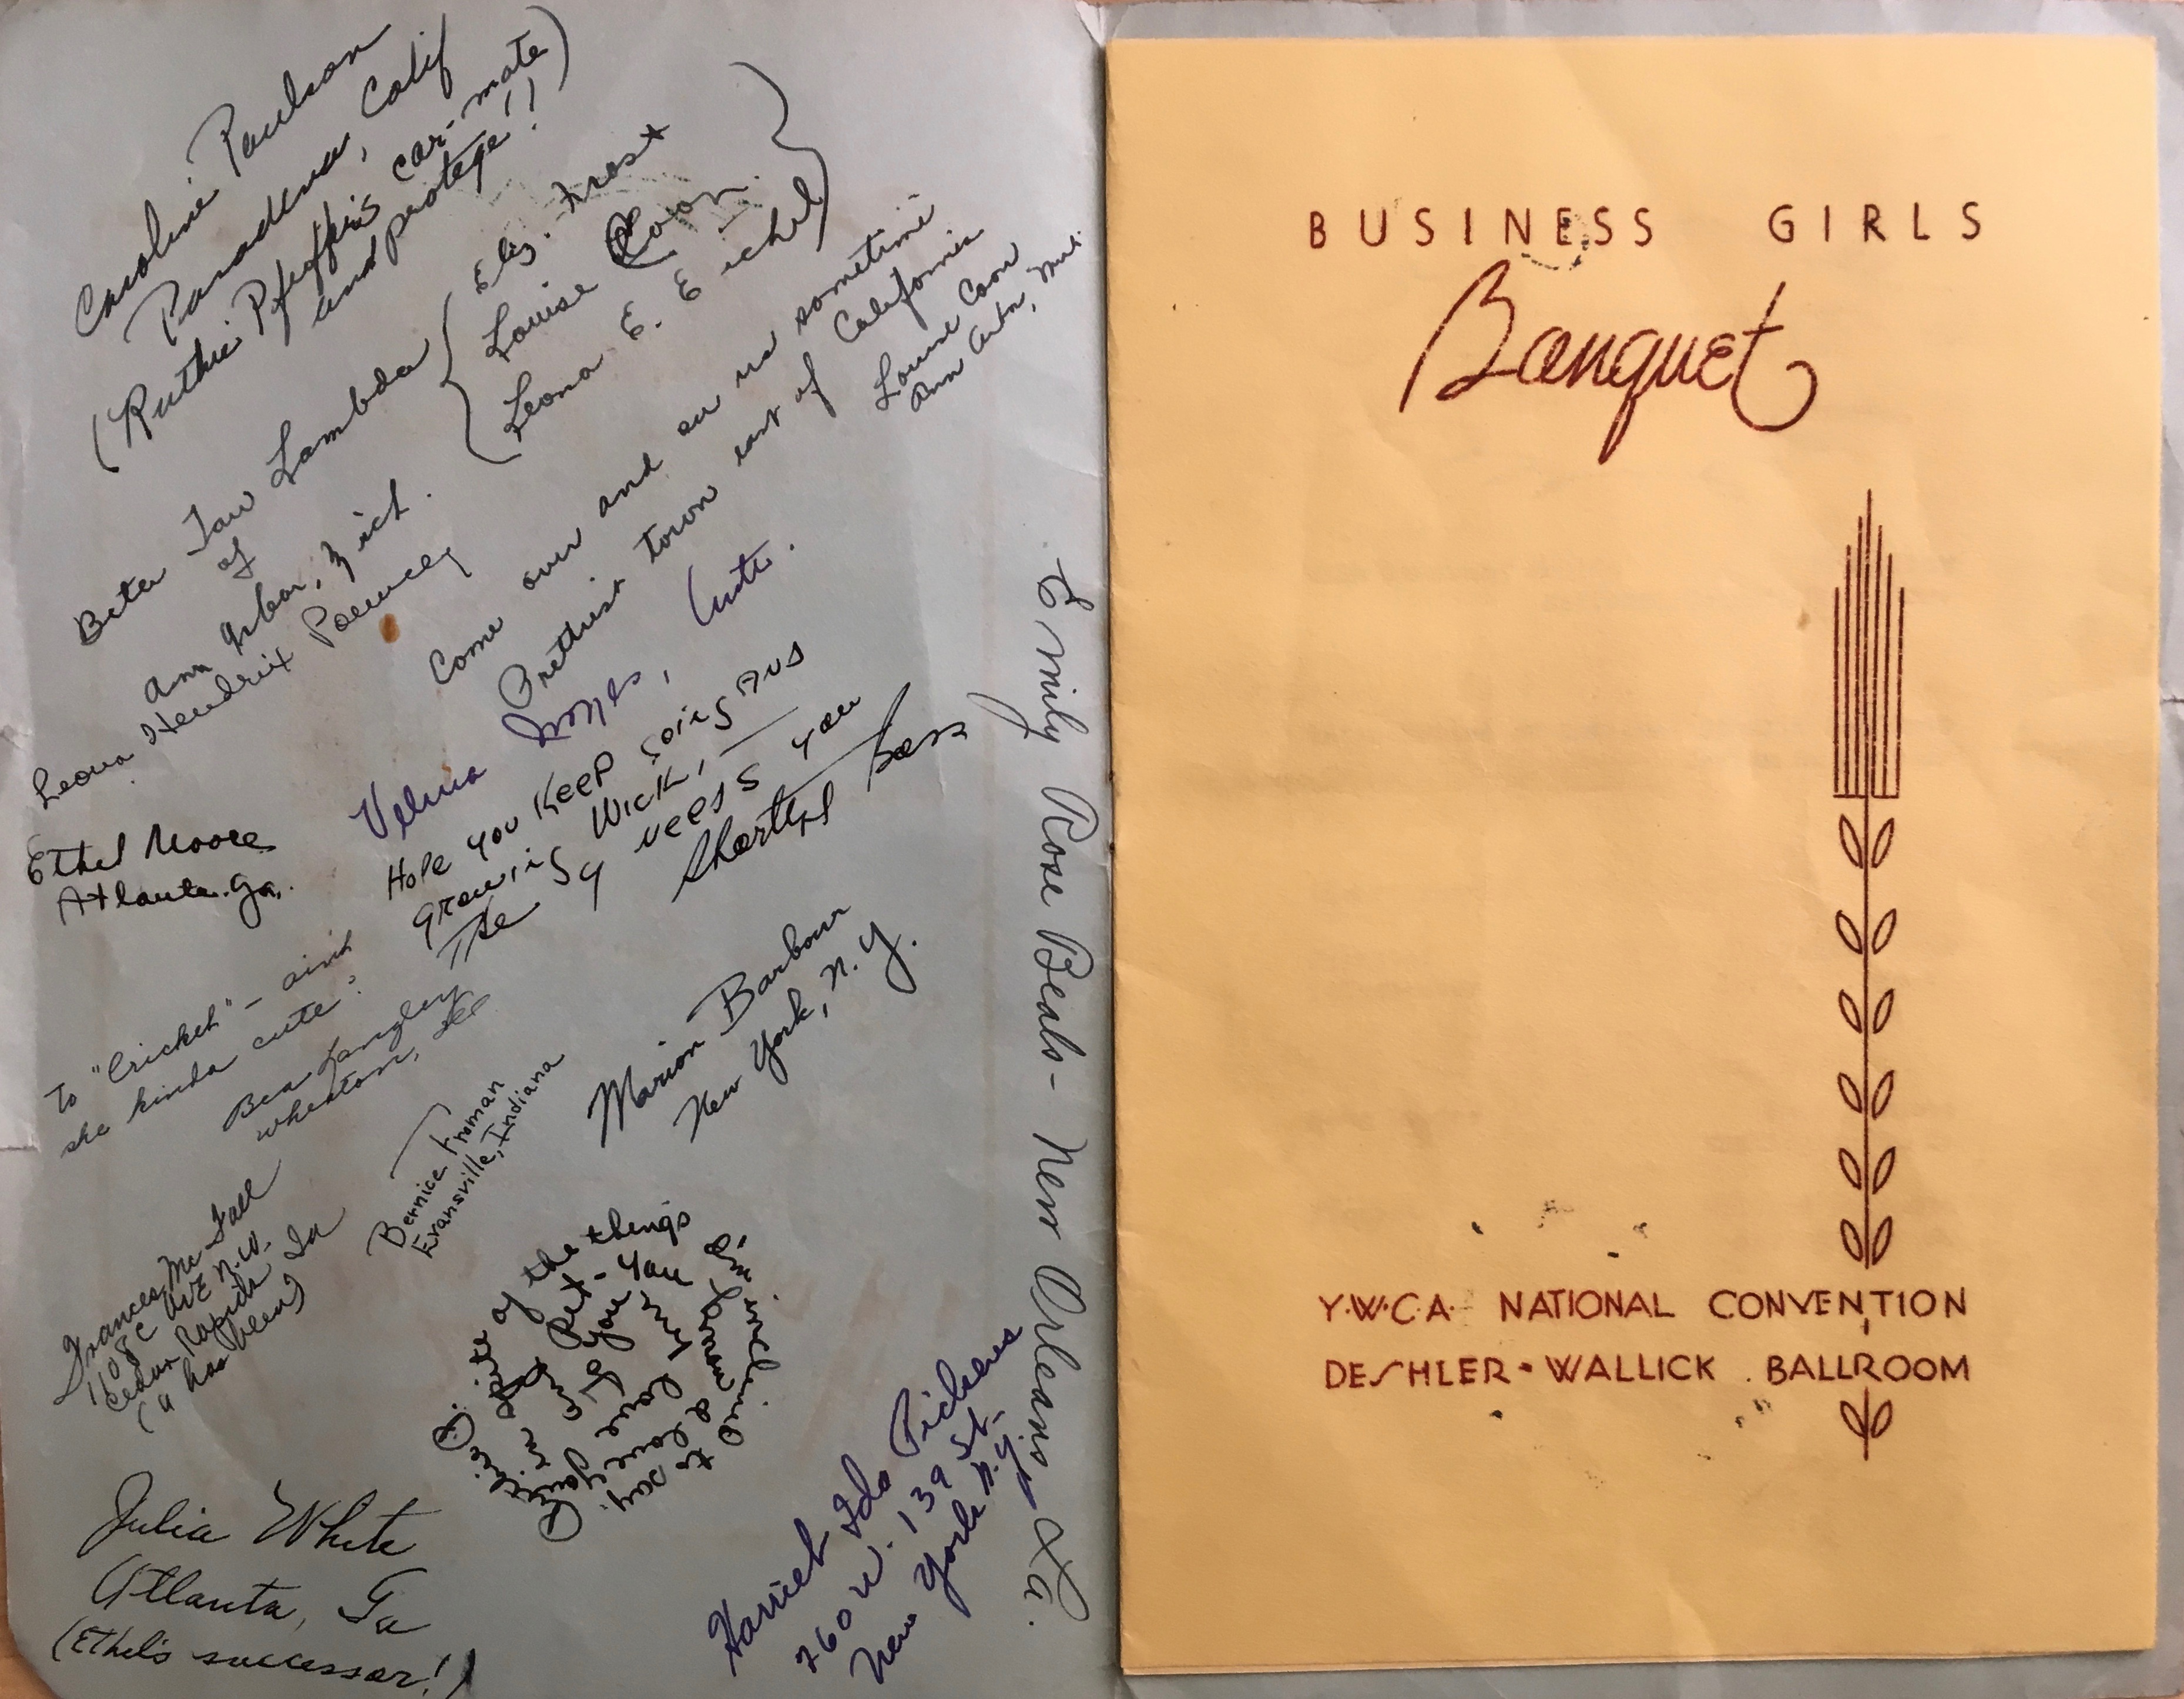 Caroline Paulson
Pasadena, Calif
(Ruthie Pfuffer's car-mate
and protege!!)
Beta Tau Lambda
of
Ann Arbor, Mich.
Eliz. Frost
Louise Coon.
Leona E. Eichel
Come over and see us sometime
Prettiest town east of California
Louise Coon
Ann Arbor, Mich.
Leova Hendrix
Velma Jones,
Hope you keep going and
growing Wick,—
The Sy needs you
Shorty Bass
Ethel Moore
Atlanta. Ga.
To "Cricket" – ain't
she kinda cute?
Bea Langley
Wheaton, Ill
Marion Barbour
New York, N.Y.
Bernice Froman
Evansville, Indiana
Frances McFall
C Ave N.W.
Cedar Rapids Ia
(a has been)
In spite of the things
love you
inclined to say
Julia White
Atlanta, Ga
(Ethel's successor!)
Harriet Ida Pickens
260 W. 139 St-
New York N.Y.
Emily Rose Beals - New Orleans La.
BUSINESS GIRLS
Banquet
Y.W.C.A. NATIONAL CONVENTION
DESHLER-WALLICK BALLROOM